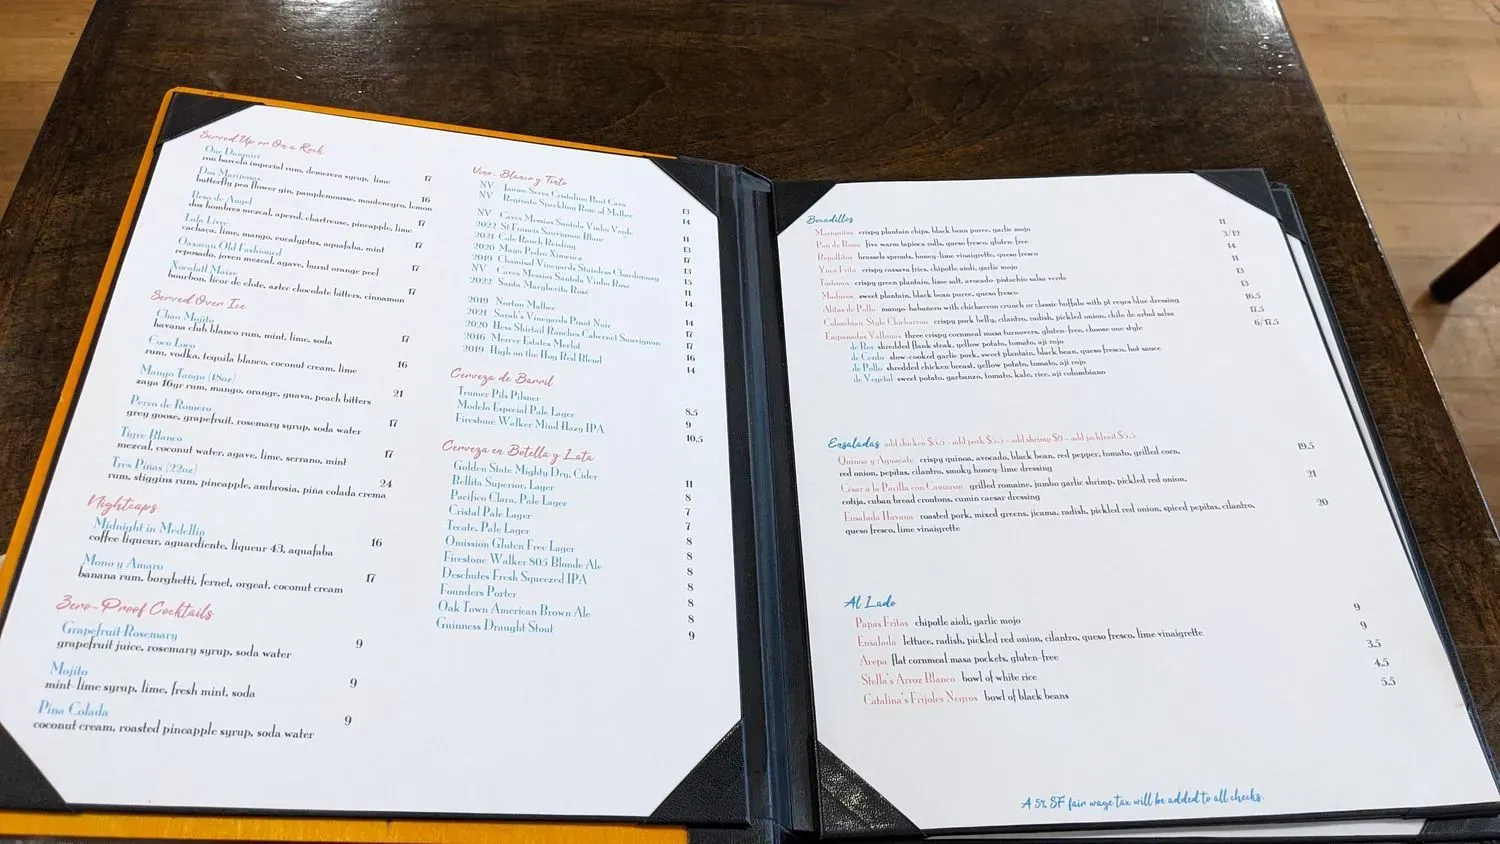 Served Up or On a Rock
Our Daiquiri
ron barceló imperial rum, demerera syrup, lime 17
Dos Mariposas
butterfly pea flower gin, pamplemousse, montenegro, lemon 16
Beso de Angel
dos hombres mezcal, aperol, chartreuse, pineapple, lime 17
Lula Livre
cachaça, lime, mango, eucalyptus, aquafaba, mint 17
Oaxacan Old Fashioned
reposado, joven mezcal, agave, burnt orange peel 17
Xocolatl Maize
bourbon, licor de elote, aztec chocolate bitters, cinnamon 17
Served Over Ice
Chao Mojito
havana club blanco rum, mint, lime, soda 17
Coco Loco
rum, vodka, tequila blanco, coconut cream, lime 16
Mango Tango (18oz)
zaya 16yr rum, mango, orange, guava, peach bitters 21
Perro de Romero
grey goose, grapefruit, rosemary syrup, soda water 17
Tigre Blanco
mezcal, coconut water, agave, lime, serrano, mint 17
Tres Piñas (22oz)
rum, stiggins rum, pineapple, ambrosia, piña colada crema 24
Nightcaps
Midnight in Medellin
coffee liqueur, aguardiente, liqueur 43, aquafaba 16
Mono y Amaro
banana rum, borghetti, fernet, orgeat, coconut cream 17
Zero-Proof Cocktails
Grapefruit Rosemary
grapefruit juice, rosemary syrup, soda water 9
Mojito
mint-lime syrup, lime, fresh mint, soda 9
Pina Colada
coconut cream, roasted pineapple syrup, soda water 9
Vino, Blanco y Tinto
NV Jaume Serra Cristalino Brut Cava 13
NV Reginato Sparkling Rosé of Malbec 14
NV Caves Messias Santola Vinho Verde 11
2022 St Francis Sauvignon Blanc 13
2021 Cole Ranch Riesling 17
2020 Maya Pedro Ximenez 13
2019 Chamisal Vineyards Stainless Chardonnay 15
NV Caves Messias Santola Vinho Rosé 11
2022 Santa Margherita Rosé 14
2019 Norton Malbec 14
2021 Sarah's Vineyards Pinot Noir 17
2020 Hess Shirtail Ranches Cabernet Sauvignon 17
2016 Mercer Estates Merlot 16
2019 High on the Hog Red Blend 14
Cerveza de Barril
Trumer Pils Pilsner 8.5
Modelo Especial Pale Lager 9
Firestone Walker Mind Hazy IPA 10.5
Cerveza en Botella y Lata
Golden State Mighty Dry, Cider 11
Bellita Superior, Lager 8
Pacifico Clara, Pale Lager 7
Cristal Pale Lager 7
Tecate, Pale Lager 8
Omission Gluten Free Lager 8
Firestone Walker 805 Blonde Ale 8
Deschutes Fresh Squeezed IPA 8
Founders Porter 8
Oak Town American Brown Ale 8
Guinness Draught Stout 9
Bocadillos
Mariquitas crispy plantain chips, black bean puree, garlic mojo 11
Pan de Bono five warm tapioca rolls, queso fresco, gluten-free 3/12
Repollitos brussels sprouts, honey-lime vinaigrette, queso fresco 14
Yuca Frita crispy cassava fries, chipotle aioli, garlic mojo 11
Tostones crispy green plantain, lime salt, avocado-pistachio salsa verde 13
Maduros sweet plantain, black bean puree, queso fresco 13
Alitas de Pollo mango-habanero with chicharron crunch or classic buffalo with pt reyes blue dressing 16.5
Colombian-Style Chicharron crispy pork belly, cilantro, radish, pickled onion, chile de arbol salsa 17.5
Empanadas Vallunas three crispy cornmeal masa turnovers, gluten-free, choose one style 6/17.5
de Res shredded flank steak, yellow potato, tomato, aji rojo
de Cerdo slow-cooked garlic pork, sweet plantain, black bean, queso fresco, hot sauce
de Pollo shredded chicken breast, yellow potato, tomato, aji rojo
de Vegetal sweet potato, garbanzo, tomato, kale, rice, aji colombiano
Ensaladas add chicken $5.5 - add pork $5.5 - add shrimp $9 - add jackfruit $5.5
Quinoa y Aguacate crispy quinoa, avocado, black bean, red pepper, tomato, grilled corn, 19.5
red onion, pepitas, cilantro, smoky honey-lime dressing
César a la Parilla con Camaron grilled romaine, jumbo garlic shrimp, pickled red onion, 21
cotija, cuban bread croutons, cumin caesar dressing
Ensalada Havana roasted pork, mixed greens, jicama, radish, pickled red onion, spiced pepitas, cilantro, 20
queso fresco, lime vinaigrette
Al Lado
Papas Fritas chipotle aioli, garlic mojo 9
Ensalada lettuce, radish, pickled red onion, cilantro, queso fresco, lime vinaigrette 9
Arepa flat cornmeal masa pockets, gluten-free 3.5
Stella's Arroz Blanco bowl of white rice 4.5
Catalina's Frijoles Negros bowl of black beans 5.5
A 5% SF fair wage tax will be added to all checks.